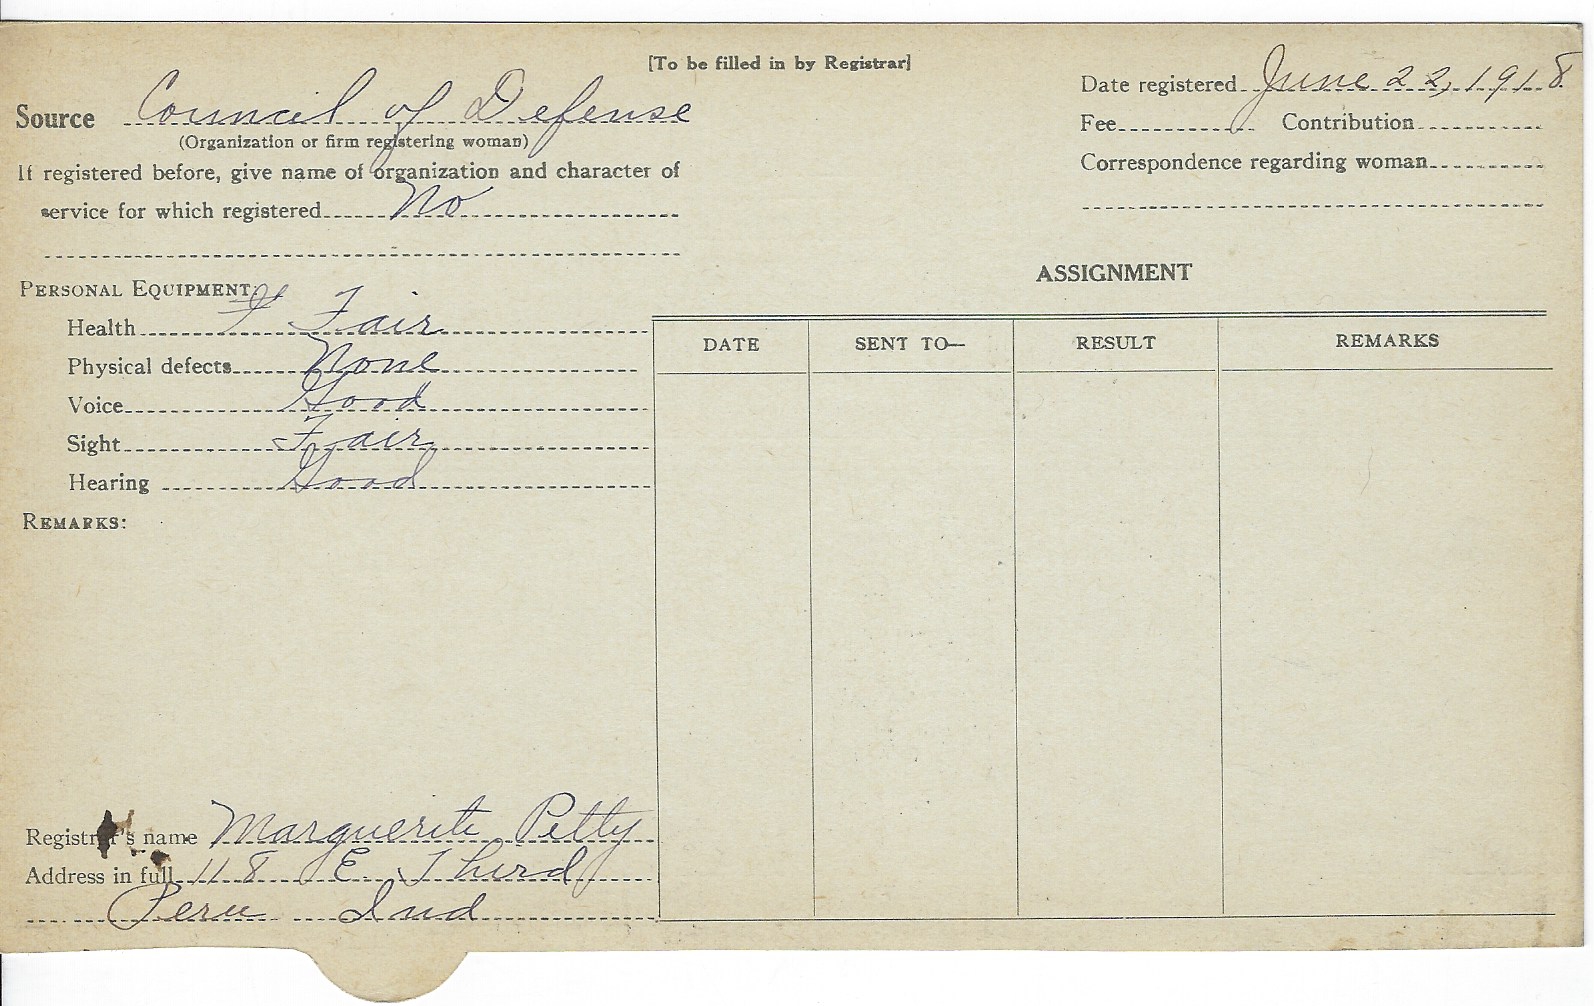 [To be filled in by Registrar]
Source Council of Defense
(Organization or firm registering woman)
If registered before, give name of organization and character of
service for which registered No
Date registered June 22, 1918
Fee Contribution
Correspondence regarding woman
PERSONAL EQUIPMENT
Health F Fair
Physical defects None
Voice Good
Sight Fair
Hearing Good
REMARKS:
ASSIGNMENT
DATE SENT TO— RESULT REMARKS
Registrar's name Marguerite Petty
Address in full 118 E Third
Peru Ind